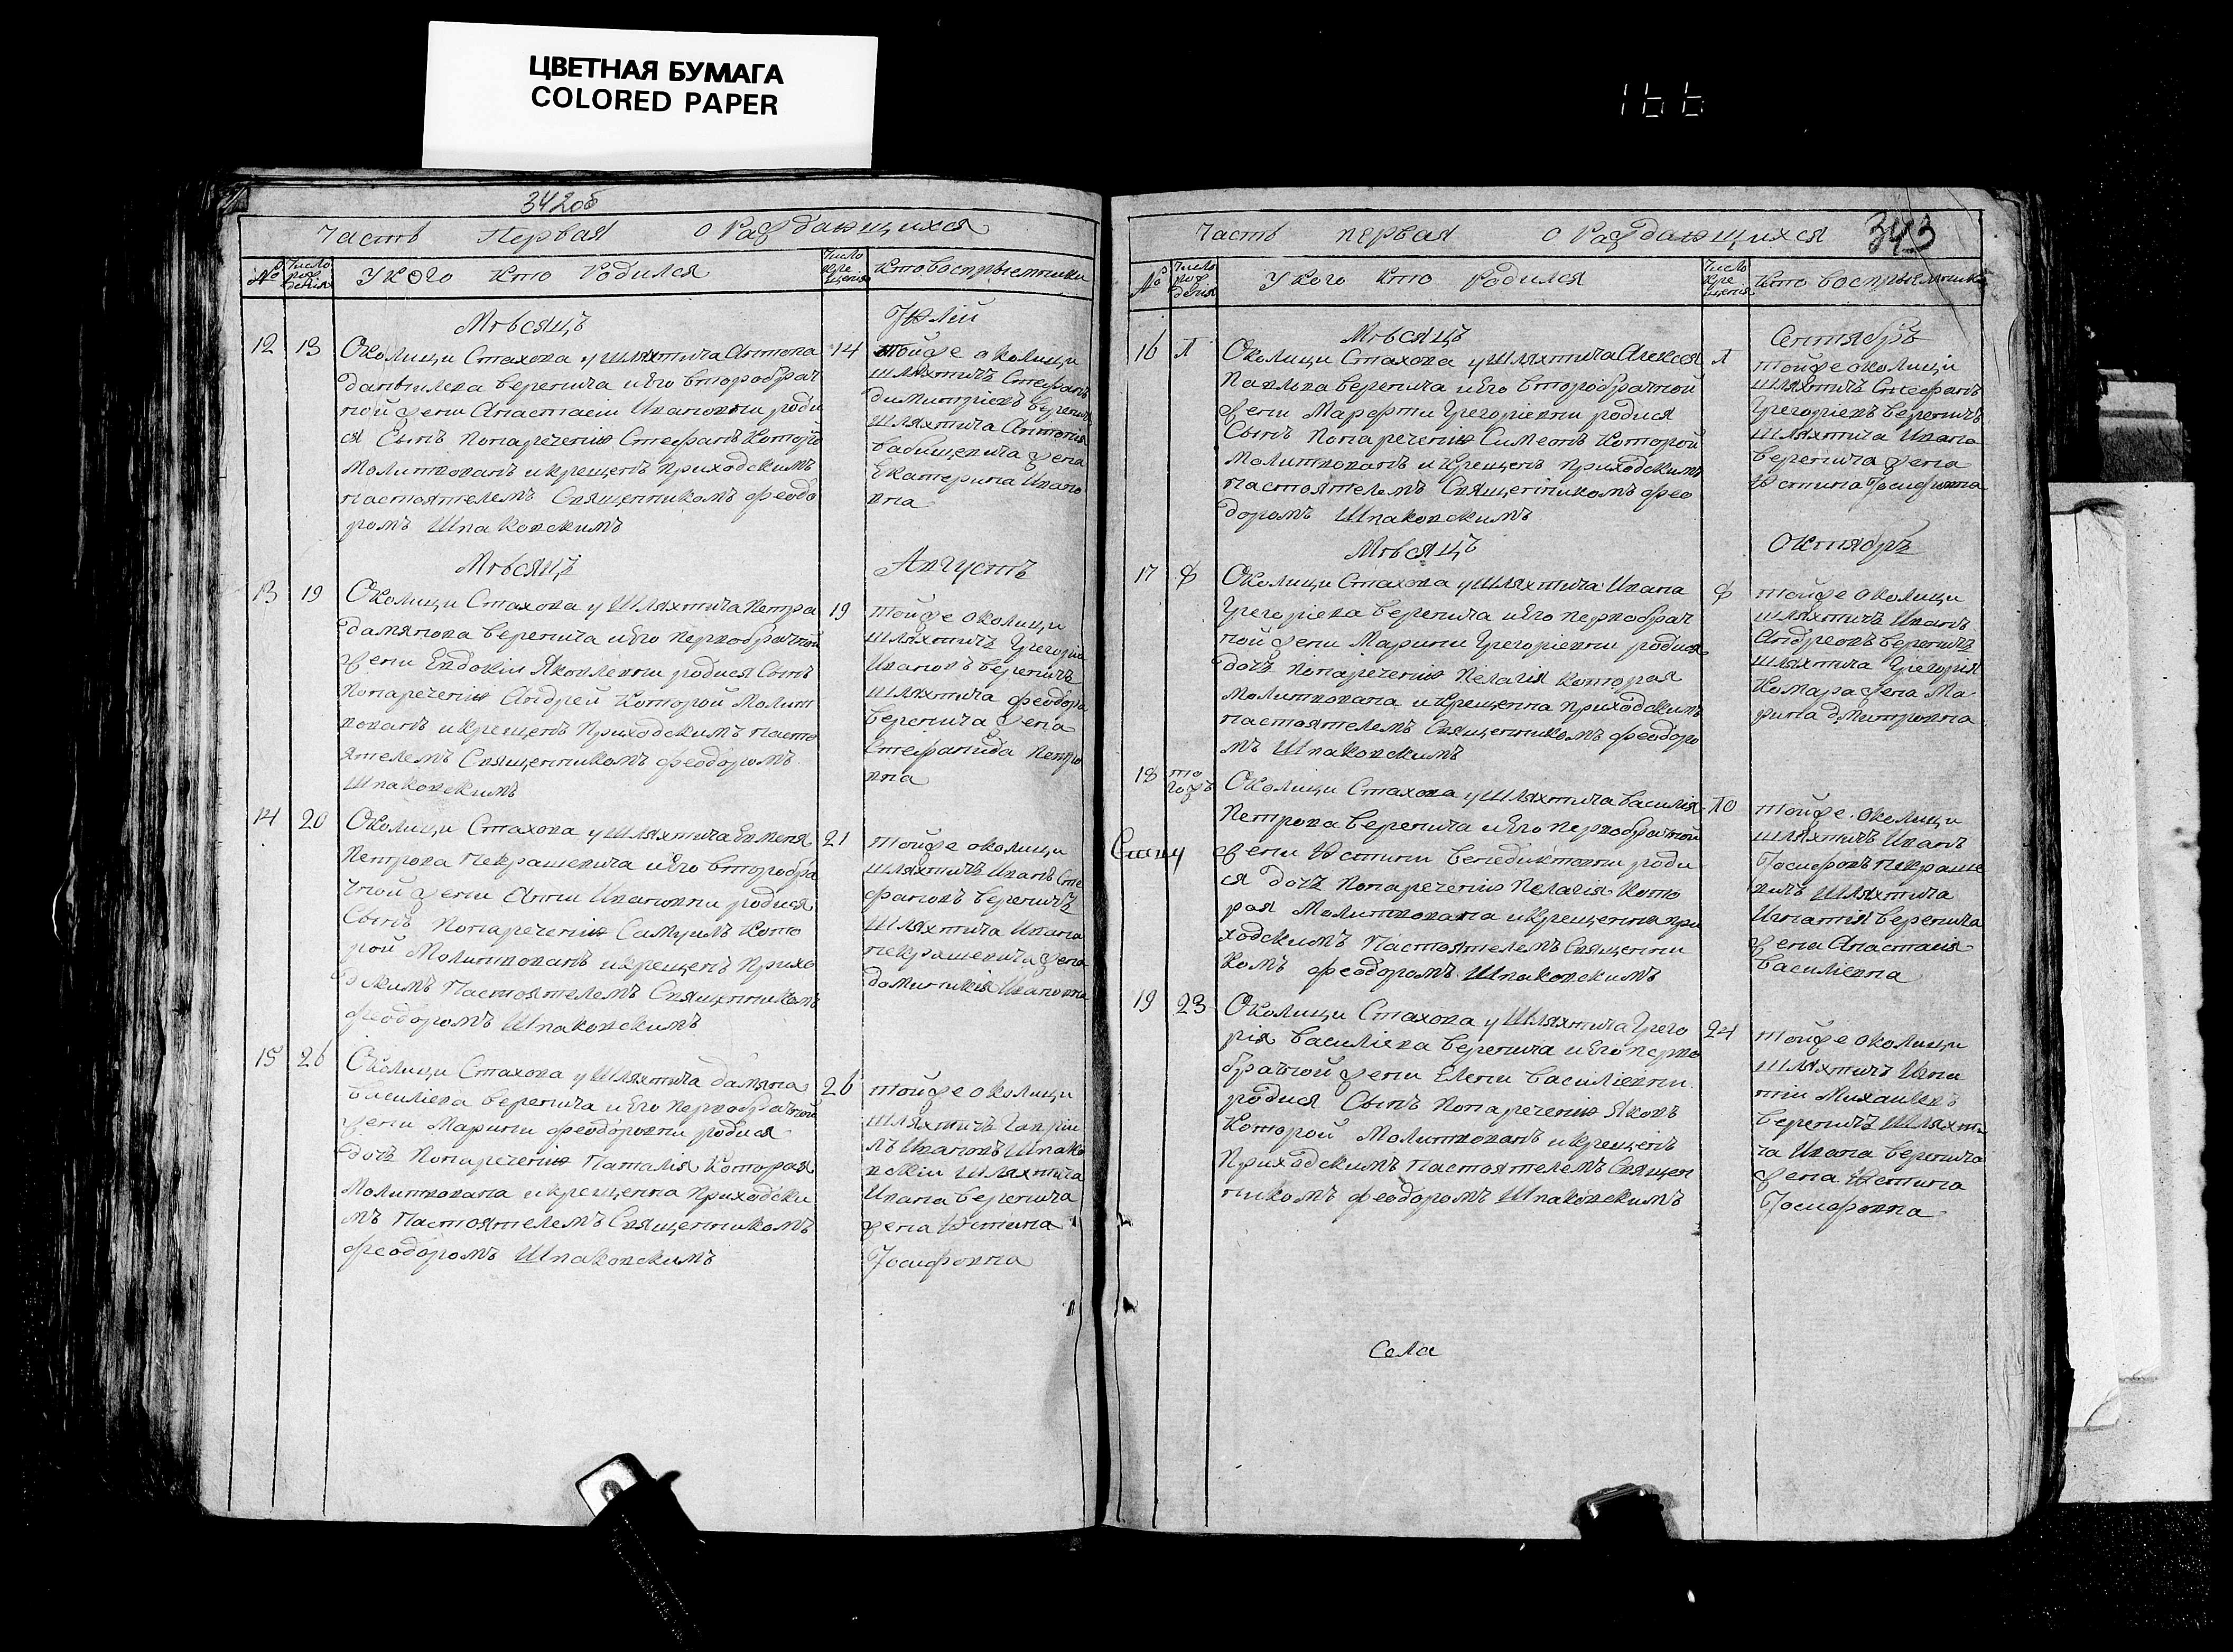 ЦВЕТНАЯ БУМАГА
COLORED PAPER
166
342об
Часть Первая о Раждающихся
№ Число рож дения
У кого кто родился
Число кре щения
кто восприемники
Мѣсяцъ Іюлій
12 13
Околици Стахова у шляхтича Антона
Данѣилева Веренича и его второбрач
ной жени Анастасіи Ивановни роди
ся Сынъ Понаречению Стефанъ Которо
молитвованъ и крещенъ приходскимъ
настоятелемъ Священникомъ Феодо
ромъ Шпаковскимъ
14
тойже околици
шляхтичъ Стефанъ
Димитріевъ Вереничъ
шляхтича Антонія
Бабищевича жена
Екатерина Ивано
вна
Мѣсяцъ Августъ
13 19
Околици Стахова у Шляхтича Петра
Дамянова Веренича и его первобрачной
жени Евдокіи Яковлевни родися Сынъ
Понаречению Андрей Которой Молит
вованъ и крещенъ Приходскимъ насто
ятелемъ Священникомъ Феодоромъ
Шпаковскимъ
19
тойже околици
шляхтичъ Григорій
Ивановъ Вереничъ
шляхтича Феодора
Веренича жена
Стефанида Петро
вна
14 20
Околици Стахова у Шляхтича Евменя
Петрова Некрашевича и его второбра
чной жени Анни Ивановни родися
Сынъ Понаречению Самуилъ Кото
рой Молитвованъ и крещенъ Прихо
дскимъ Настоятелемъ Священникомъ
Феодоромъ Шпаковскимъ
21
тойже околици
шляхтичъ Иванъ Сте
фановъ Вереничъ
шляхтича Ивана
Некрашевича жена
Домникія Ивановна
15 26
Околици Стахова у Шляхтича Дамяна
Василіева Веренича и его первобрачной
жени Марини Феодоровни родися
дочь Понаречению Наталія Которая
Молитвована и крещенна Приходски
мъ Настоятелемъ Священникомъ
Феодоромъ Шпаковскимъ
26
тойже околици
шляхтичъ Гавріи
лъ Ивановъ Шпако
вскій шляхтича
Ивана Веренича
жена Юстина
Іосифовна
343
Часть первая о Раждающихся
№ Число рож дения
У кого кто Родился
Число кре щения
кто восприемники
Мѣсяцъ Сентябръ
16 1
Околици Стахова у Шляхтича Алексея
Павлова Веренича и его второбрачной
жени Марфти Григоріевни родися
Сынъ Понаречению Симеонъ Которой
Молитвованъ и Крещенъ приходскимъ
настоятелемъ Священникомъ Фео
доромъ Шпаковскимъ
1
тойже околици
шляхтичъ Стефанъ
Григоріевъ Вереничъ
шляхтича Ивана
Веренича жена
Юстина Іосифовна
Мѣсяцъ Октябръ
17
Околици Стахова у Шляхтича Ивана
Григоріева Веренича и его первобрач
ной жени Марини Григоріевни родися
дочь Понаречению Пелагія Которая
молитвована и крещенна приходскимъ
настоятелемъ Священникомъ Феодоро
мъ Шпаковскимъ
тойже околици
шляхтичъ Иванъ
Андреовъ Вереничъ
шляхтича Григорія
Комара жена Ма
рина Дмитровна
18 то гожъ
Околици Стахова у Шляхтича Василія
Петрова Веренича и его первобрачной
жени Юстини Венедиктовни роди
ся дочь Понаречению Пелагія Кото
рая Молитвована и крещенна при
ходскимъ Настоятелемъ Священни
комъ Феодоромъ Шпаковскимъ
10
тойже околици
шляхтичъ Иванъ
Іосифовъ Некраше
вичъ шляхтича
Игнатія Веренича
жена Анастасія
Василіевна
19 23
Околици Стахова у Шляхтича Григо
рія Василіева Веренича и его перво
брачной жени Елени Василіевни
родися Сынъ Понаречению Яковъ
Которой Молитвованъ и крещенъ
Приходскимъ Настоятелемъ Священ
никомъ Феодоромъ Шпаковскимъ
24
тойже околици
шляхтичъ Игна
тій Михаилевъ
Вереничъ Шляхти
ча Ивана Веренича
жена Юстина
Іосифовна
Села